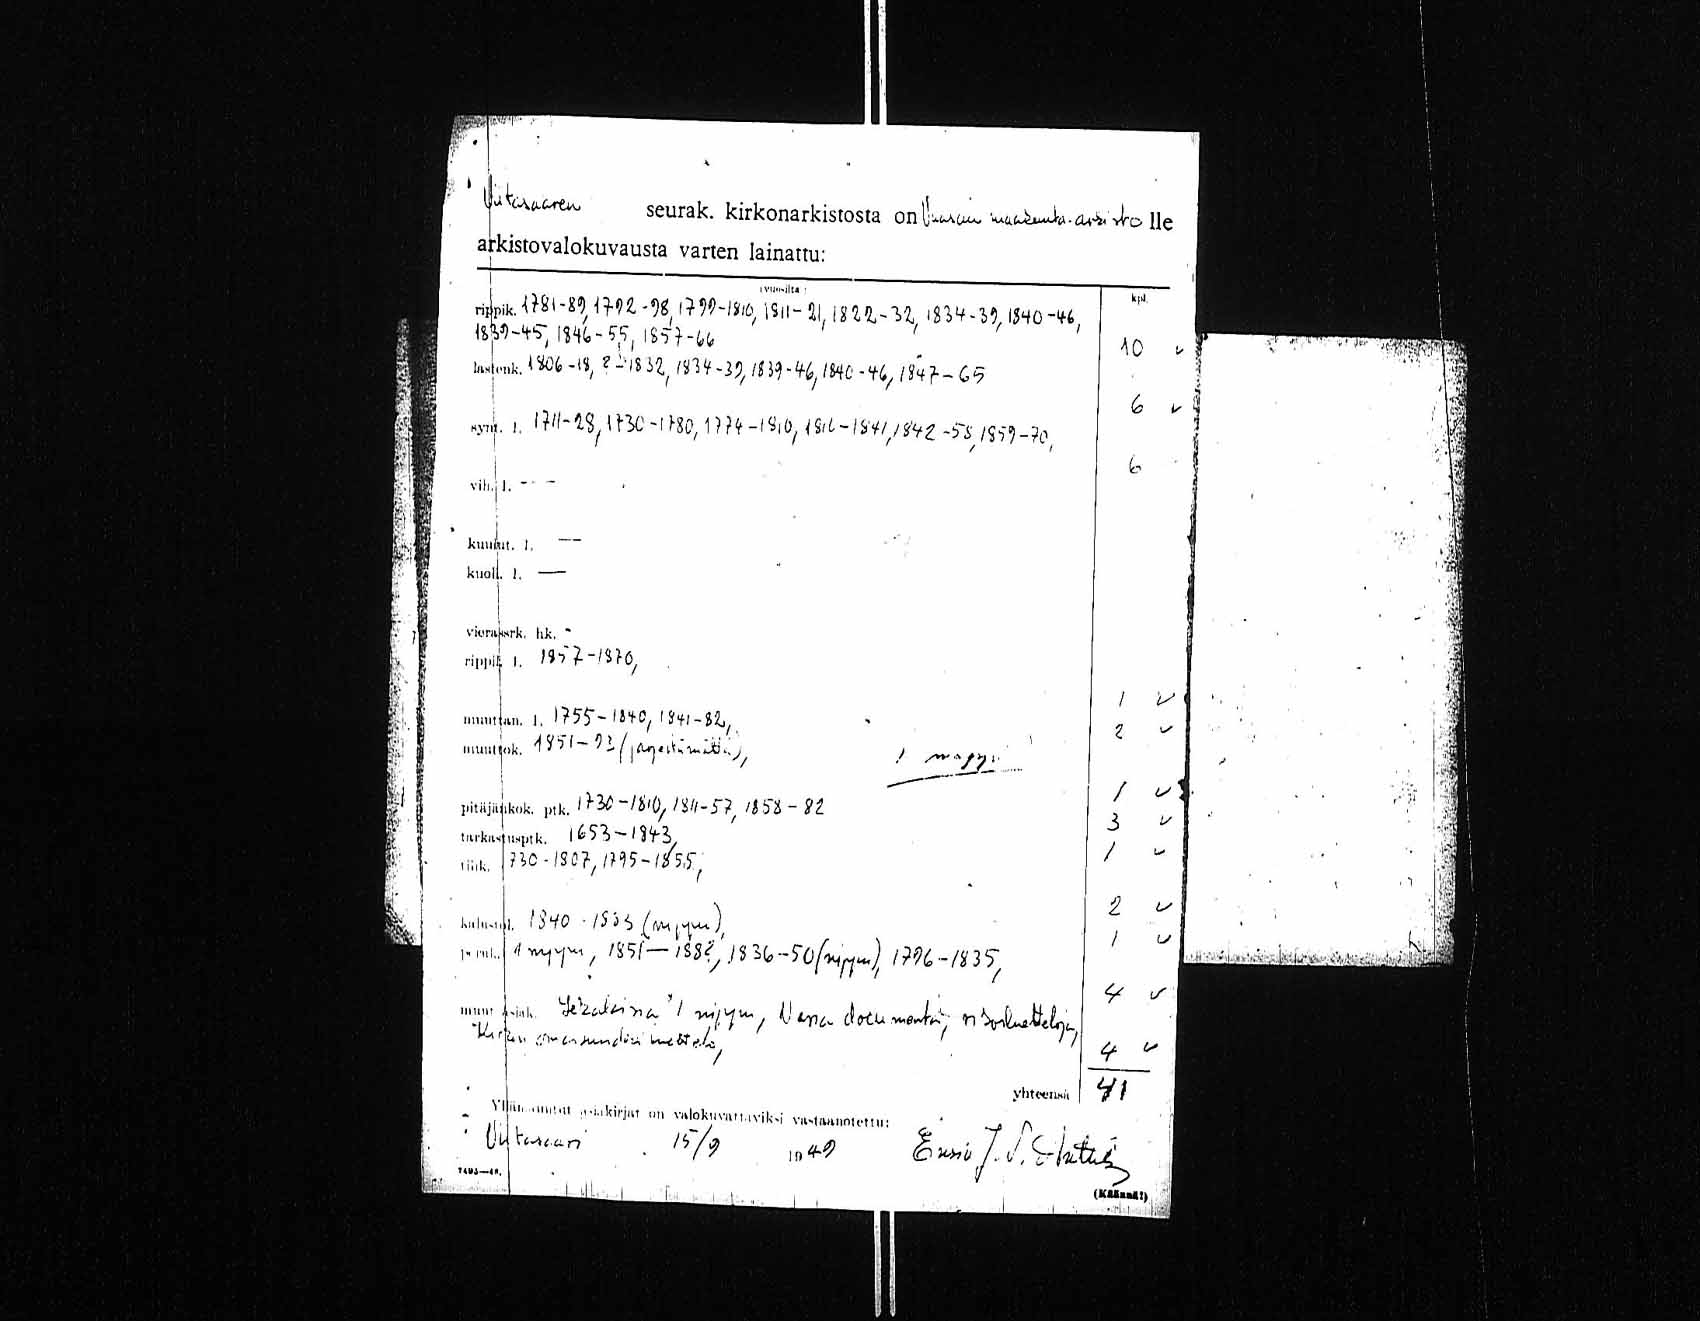 Viitasaaren seurak. kirkonarkistosta on Vaasan maakunta-arkisto lle
arkistovalokuvausta varten lainattu:
(vuosilta) kpl.
rippik. 1781-89, 1792-98, 1799-1810, 1811-21, 1822-32, 1834-39, 1840-46,
1839-45, 1846-55, 1857-66 10
lastenk. 1806-18, ?-1832, 1834-39, 1839-46, 1840-46, 1847-65
6
synt. l. 1711-28, 1730-1780, 1774-1810, 1810-1841, 1842-58, 1859-70,
6
vih. l. ---
kuulut. l. —
kuoll. l. —
vierassrk. hk. -
rippik. l. 1857-1870,
1
muuttan. l. 1755-1840, 1841-82,
2
muuttok. 1851-93 (järjestämättä), 1
1
pitäjänkok. ptk. 1730-1810, 1811-57, 1858-82
3
tarkastusptk. 1653-1843,
1
tilik. 1730-1807, 1795-1855,
2
kalustol.
1
1 nippu, 1836-50 (nippu), 1796-1835,
4
muut asiak. "Sekalaisia" 1 nippu, documenta,
4
yhteensä 41
Yllämainitut asiakirjat on valokuvattaviksi vastaanotettu:
Viitasaari 15/9 1949
7493—48.
(Käännä!)